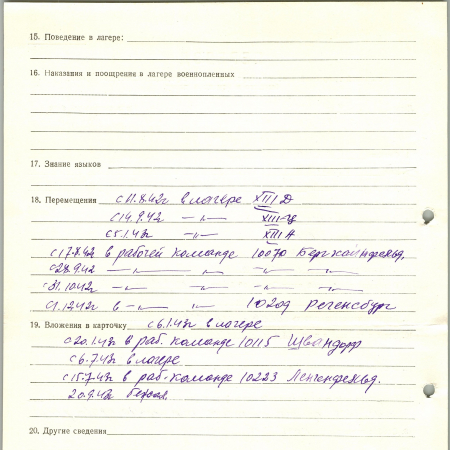 15. Поведение в лагере:
16. Наказания и поощрения в лагере военнопленных
17. Знание языков
18. Перемещения с 11.8.42г в лагере XIII Д
с 14.9.42 —"— XIII-Ц
с 5.1.43г —"— XIII А
с 17.8.42 в рабочей команде 10070 Бергхайнфельд.
с 28.9.42 —"— —"— —"— —"—
с 31.10.42г —"— —"— —"— —"—
с 1.12.42г в —"— —"— 10209 Регенсбург
19. Вложения в карточку с 6.1.43г в лагере
с 20.1.43г в раб. команде 10115 Швандорф
с 6.7.43г в лагере
с 15.7.43г в раб. команде 10223 Ленгенфельд.
20.9.43г
20. Другие сведения